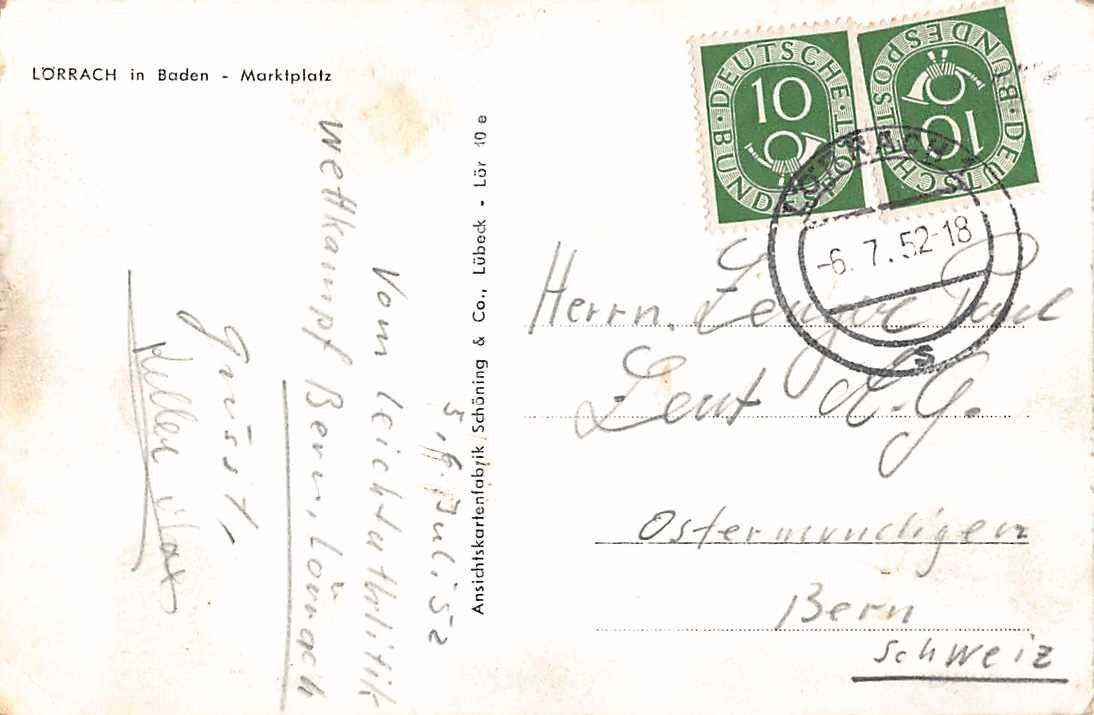 LÖRRACH in Baden - Marktplatz
5./6. Juli 52
Vom Leichtathletik
Wettkampf Bern, Lörrach
grüsst,
Keller Max
Ansichtskartenfabrik Schöning & Co., Lübeck - Lör 10 e
DEUTSCHE BUNDESPOST
10
DEUTSCHE BUNDESPOST
10
LÖRRACH
-6.7.52-18
s
Herrn. Zenger Paul
Zent A.G.
Ostermundigen
Bern
Schweiz